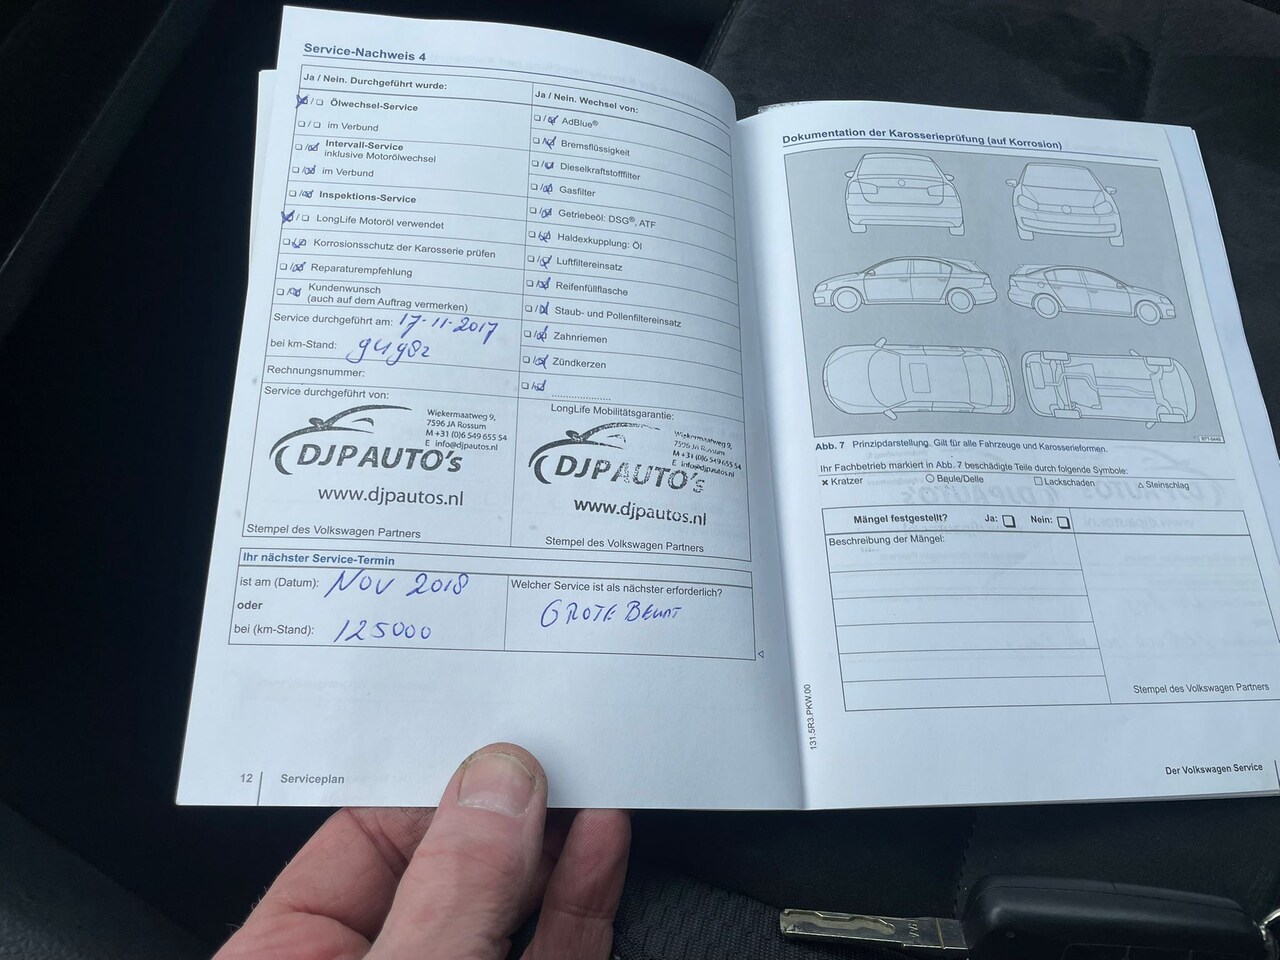 Service-Nachweis 4
Ja / Nein. Durchgeführt wurde:
Ölwechsel-Service
im Verbund
Intervall-Service
inklusive Motorölwechsel
im Verbund
Inspektions-Service
LongLife Motoröl verwendet
Korrosionsschutz der Karosserie prüfen
Reparaturempfehlung
Kundenwunsch
(auch auf dem Auftrag vermerken)
Service durchgeführt am: 17-11-2017
bei km-Stand: 94982
Rechnungsnummer:
Service durchgeführt von:
Wiekermaatweg 9,
7596 JA Rossum
M +31 (0)6 549 655 54
E info@djpautos.nl
DJPAUTO's
www.djpautos.nl
Stempel des Volkswagen Partners
Ja / Nein. Wechsel von:
AdBlue®
Bremsflüssigkeit
Dieselkraftstofffilter
Gasfilter
Getriebeöl: DSG®, ATF
Haldexkupplung: Öl
Luftfiltereinsatz
Reifenfüllflasche
Staub- und Pollenfiltereinsatz
Zahnriemen
Zündkerzen
LongLife Mobilitätsgarantie:
Wiekermaatweg 9,
7596 JA Rossum
M +31 (0)6 549 655 54
E info@djpautos.nl
DJPAUTO's
www.djpautos.nl
Stempel des Volkswagen Partners
Ihr nächster Service-Termin
ist am (Datum): NOV 2018
oder
bei (km-Stand): 125000
Welcher Service ist als nächster erforderlich?
GROTE BEURT
12 Serviceplan
Dokumentation der Karosserieprüfung (auf Korrosion)
Abb. 7 Prinzipdarstellung. Gilt für alle Fahrzeuge und Karosserieformen.
Ihr Fachbetrieb markiert in Abb. 7 beschädigte Teile durch folgende Symbole:
× Kratzer ○ Beule/Delle □ Lackschaden △ Steinschlag
Mängel festgestellt? Ja: Nein:
Beschreibung der Mängel:
Stempel des Volkswagen Partners
131.5R3.PKW.00
Der Volkswagen Service